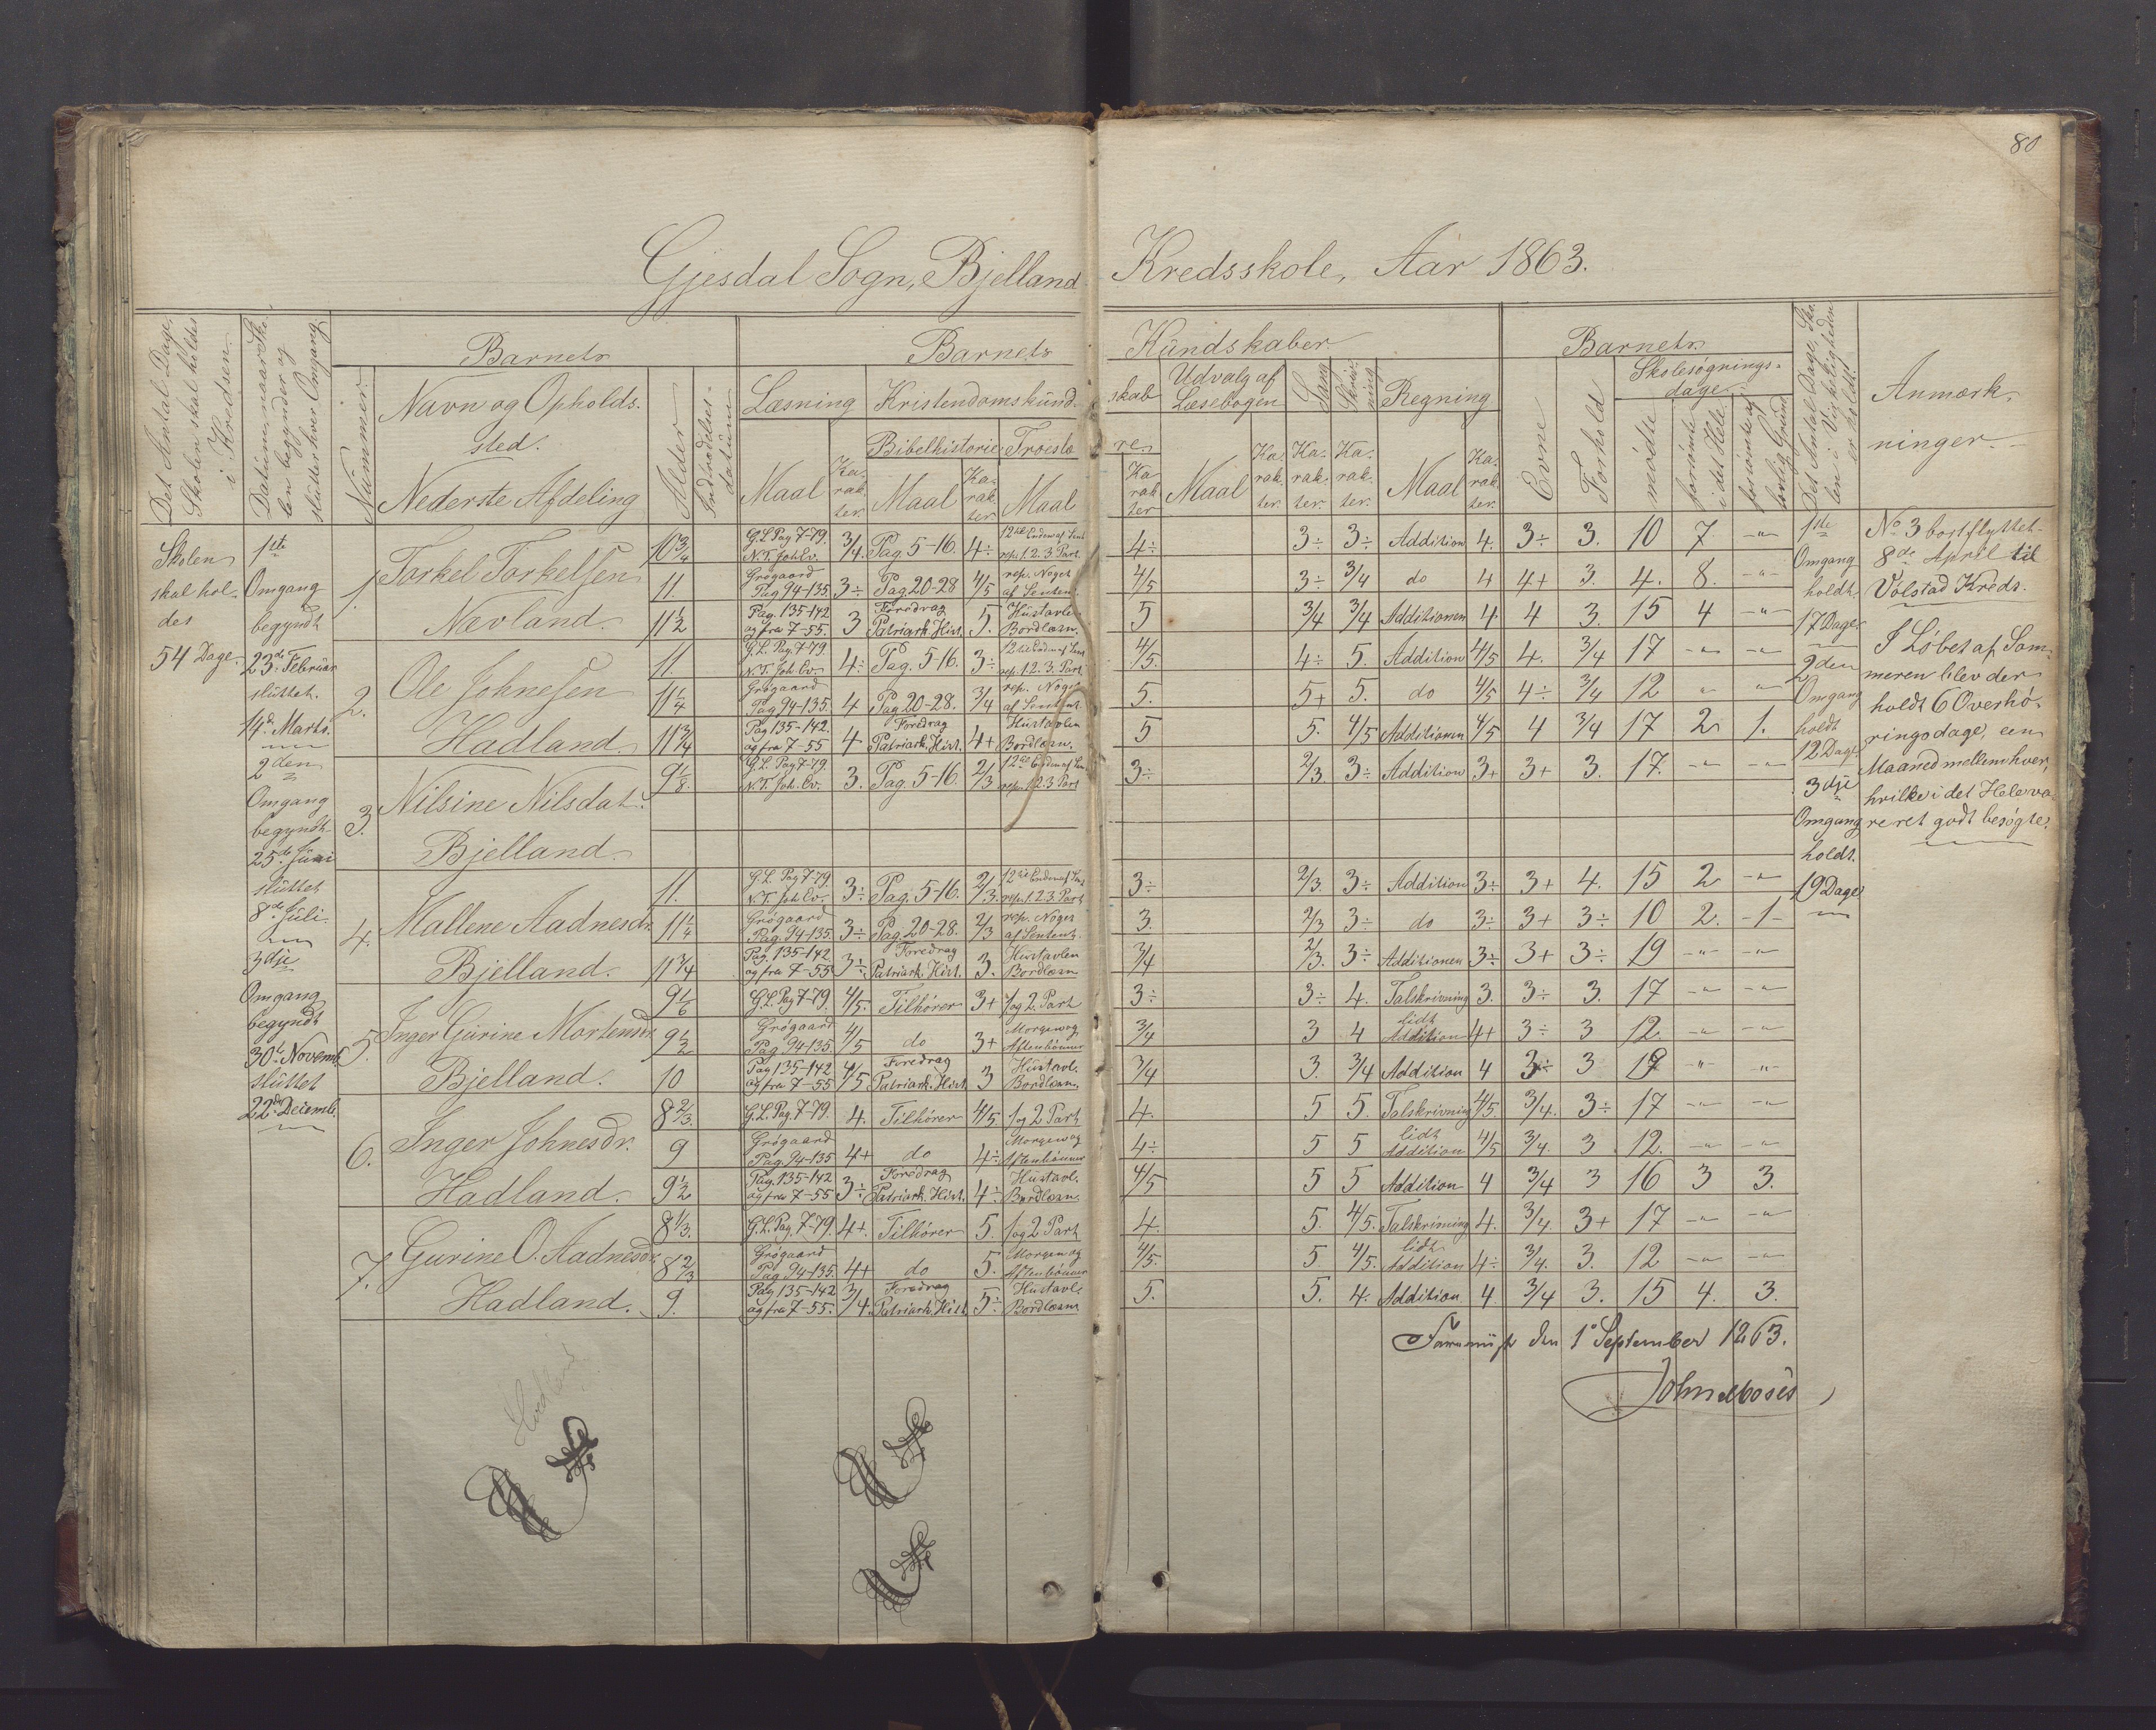 80
Gjesdal Sogn, Bjelland Kredsskole, Aar 1863.
Det Antal Dage, Skolen skal holdes i Kredsen.
Datum, naar Skolen begynder og slutter hver Omgang.
Barnets
Nummer.
Navn og Opholdssted.
Nederste Afdeling
Alder
Indtrædelsesdatum
Barnets Kundskaber
Læsning
Maal
Karakter.
Kristendomskundskab
Bibelhistorie
Maal
Karakter.
Troeslære
Maal
Karakter
Udvalg af Læsebogen
Maal
Karakter.
Sang
Karakter.
Skrivning
Karakter.
Regning
Maal
Karakter.
Barnets
Evne
Forhold
Skolesøgningsdage
mødte
forsømte i det Hele
forsømte af lovlig Grund
Det Antal Dage, Skolen i Virkeligheden er holdt.
Anmærkninger.
Skolen
skal hol-
des
54 Dage.
1ste
Omgang
begyndt
23de Februar
sluttet
14de Marts.
2den
Omgang
begyndt
25de Juni
sluttet
8de Juli
3dje
Omgang
begyndt
30te Novemb.
sluttet
22de Decemb.
1. Torkel Torkelsen
Nævland.
10 3/4 G.L. Pag 7-79. N.T. Joh. Ev. 3/4. Pag. 5-16. 4÷ 12te Enden af Sent. rep. 1. 2. 3. Part. 4÷ 3÷ 3÷ Addition 4. 3÷ 3. 10 7 -"-
11. Grøgaard Pag 94-135 3÷ Pag. 20-28 4/5 rep. Noget af Sentent. 4/5 3÷ 3/4 do 4 4+ 3. 4. 8. -"-
11 1/2 Pag. 135-142 og fra 7-55. 3 Foredrag Patriark. Hist. 5. Hustavlen Bordlæsn. 5 3/4 3/4 Additionen 4. 4 3. 15 4 -"-
2. Ole Johnesen
Hadland.
11. G.L. Pag. 7-79 N.T. Joh. Ev. 4÷ Pag. 5-16. 3÷ 12te Enden af Sent rep. 1. 2. 3. Part. 4/5. 4÷ 5. Addition 4/5 4. 3/4 17 -"- -"-
11 1/4 Grøgaard Pag 94-135. 4 Pag 20-28. 3/4 rep. Noget af Sentent. 5. 5+ 5. do 4/5 4÷ 3/4 12 " -"-
11 3/4 Pag 135-142. og fra 7-55 4 Foredrag Patriark. Hist. 4+ Hustavlen Bordlæsn. 5 5. 4/5 Additionen 4/5 4 3/4 17 2 1.
3. Nilsine Nilsdat.
Bjelland.
9 1/8. G.L. Pag 7-79 N.T. Joh. Ev. 3. Pag. 5-16. 2/3 12te Enden af Sen rep. 1. 2. 3 Part 3÷ 2/3 3÷ Addition 3+ 3+ 3. 17. -"- -"-
4. Mallene Aadnesdr.
Bjelland.
11. G.L. Pag 7-79 N.T. Joh Ev. 3÷ Pag. 5-16. 2/3. 12te Enden af Sent rep. 1. 2. 3. Part 3÷ 2/3. 3÷ Addition 3÷ 3+ 4. 15 2 -"-
11 1/4 Grøgaard Pag. 94-135. 3÷ Pag 20-28. 2/3 rep. Noget af Sentent. 3. 2/3 3÷ do 3÷ 3+ 3÷ 10 2. -1-
11 3/4 Pag. 135-142 og fra 7-55 3÷ Foredrag Patriark. Hist. 3. Hustavlen Bordlæsn 3/4 2/3. 3÷ Additionen 3÷ 3+ 3÷ 19 -"- -"-
5. Inger Gurine Mortensdr.
Bjelland.
9 1/6 G.L. Pag 7-79 4/5. Tilhører 3+ 1 og 2. Part 3÷ 3÷ 4. Talskrivning 3. 3÷ 3. 17 -"- -"-
9 1/2 Grøgaard Pag 94-135. 4/5 do 3+ Morgen og Aftenbønner 3/4 3 4 lidt Addition 4+ 3÷ 3 12. -"- -"-
10 Pag 135-142 og fra 7-55 4/5 Foredrag Patriark. Hist. 3 Hustavl. Bordlæsn. 3/4 3. 3/4 Addition 4 3÷ 3 19 -"- -"-
6. Inger Johnesdr.
Hadland.
8 2/3. G.L. Pag. 7-79. 4. Tilhører 4/5 1 og 2 Part 4. 5 5. Talskrivning 4/5. 3/4. 3÷ 17 -"- -"-
9 Grøgaard Pag. 94-135 4+ do 4÷ Morgen og Aftenbønner 4÷ 5 5 lidt Addition 4/5 3/4. 3 12. -"- -"-
9 1/2 Pag. 135-142 og fra 7-55 3÷ Foredrag Patriark. Hist. 4÷ Hustavl. Bordlæsn. 4/5 5 5 Addition 4 3/4 3 16 3 3.
7. Gurine O. Aadnesdr.
Hadland.
8 1/3. G.L. Pag. 7-79. 4+. Tilhører 5. 1 og 2 Part 4. 5. 4/5. Talskrivning 4. 3/4. 3+ 17 -"- -"-
8 2/3 Grøgaard Pag 94-135. 4+ do 5. Morgen og Aftenbønner 4/5. 5. 4/5. lidt Addition 4÷ 3/4. 3. 12 -"- -"-
9. Pag 135-142 og fra 7-55. 3/4. Foredrag Patriark. Hist 5÷ Hustavle Bordlæsn 5. 5. 4. Addition 4 3/4 3. 15 4. 3.
1ste
Omgang
holdt
17 Dage
2den
Omgang
holdt
12 Dage
3dje
Omgang
holdt.
19 Dage
No 3 bortflyttet
8de April til
Volstad Kreds.
I Løbet af Som-
meren blev der
holdt 6 Overhø-
ringsdage, een
Maaned mellem hver,
hvilke i det Hele va-
re ret godt besøgte.
den 1. September 1863.
John Moses
Hadland